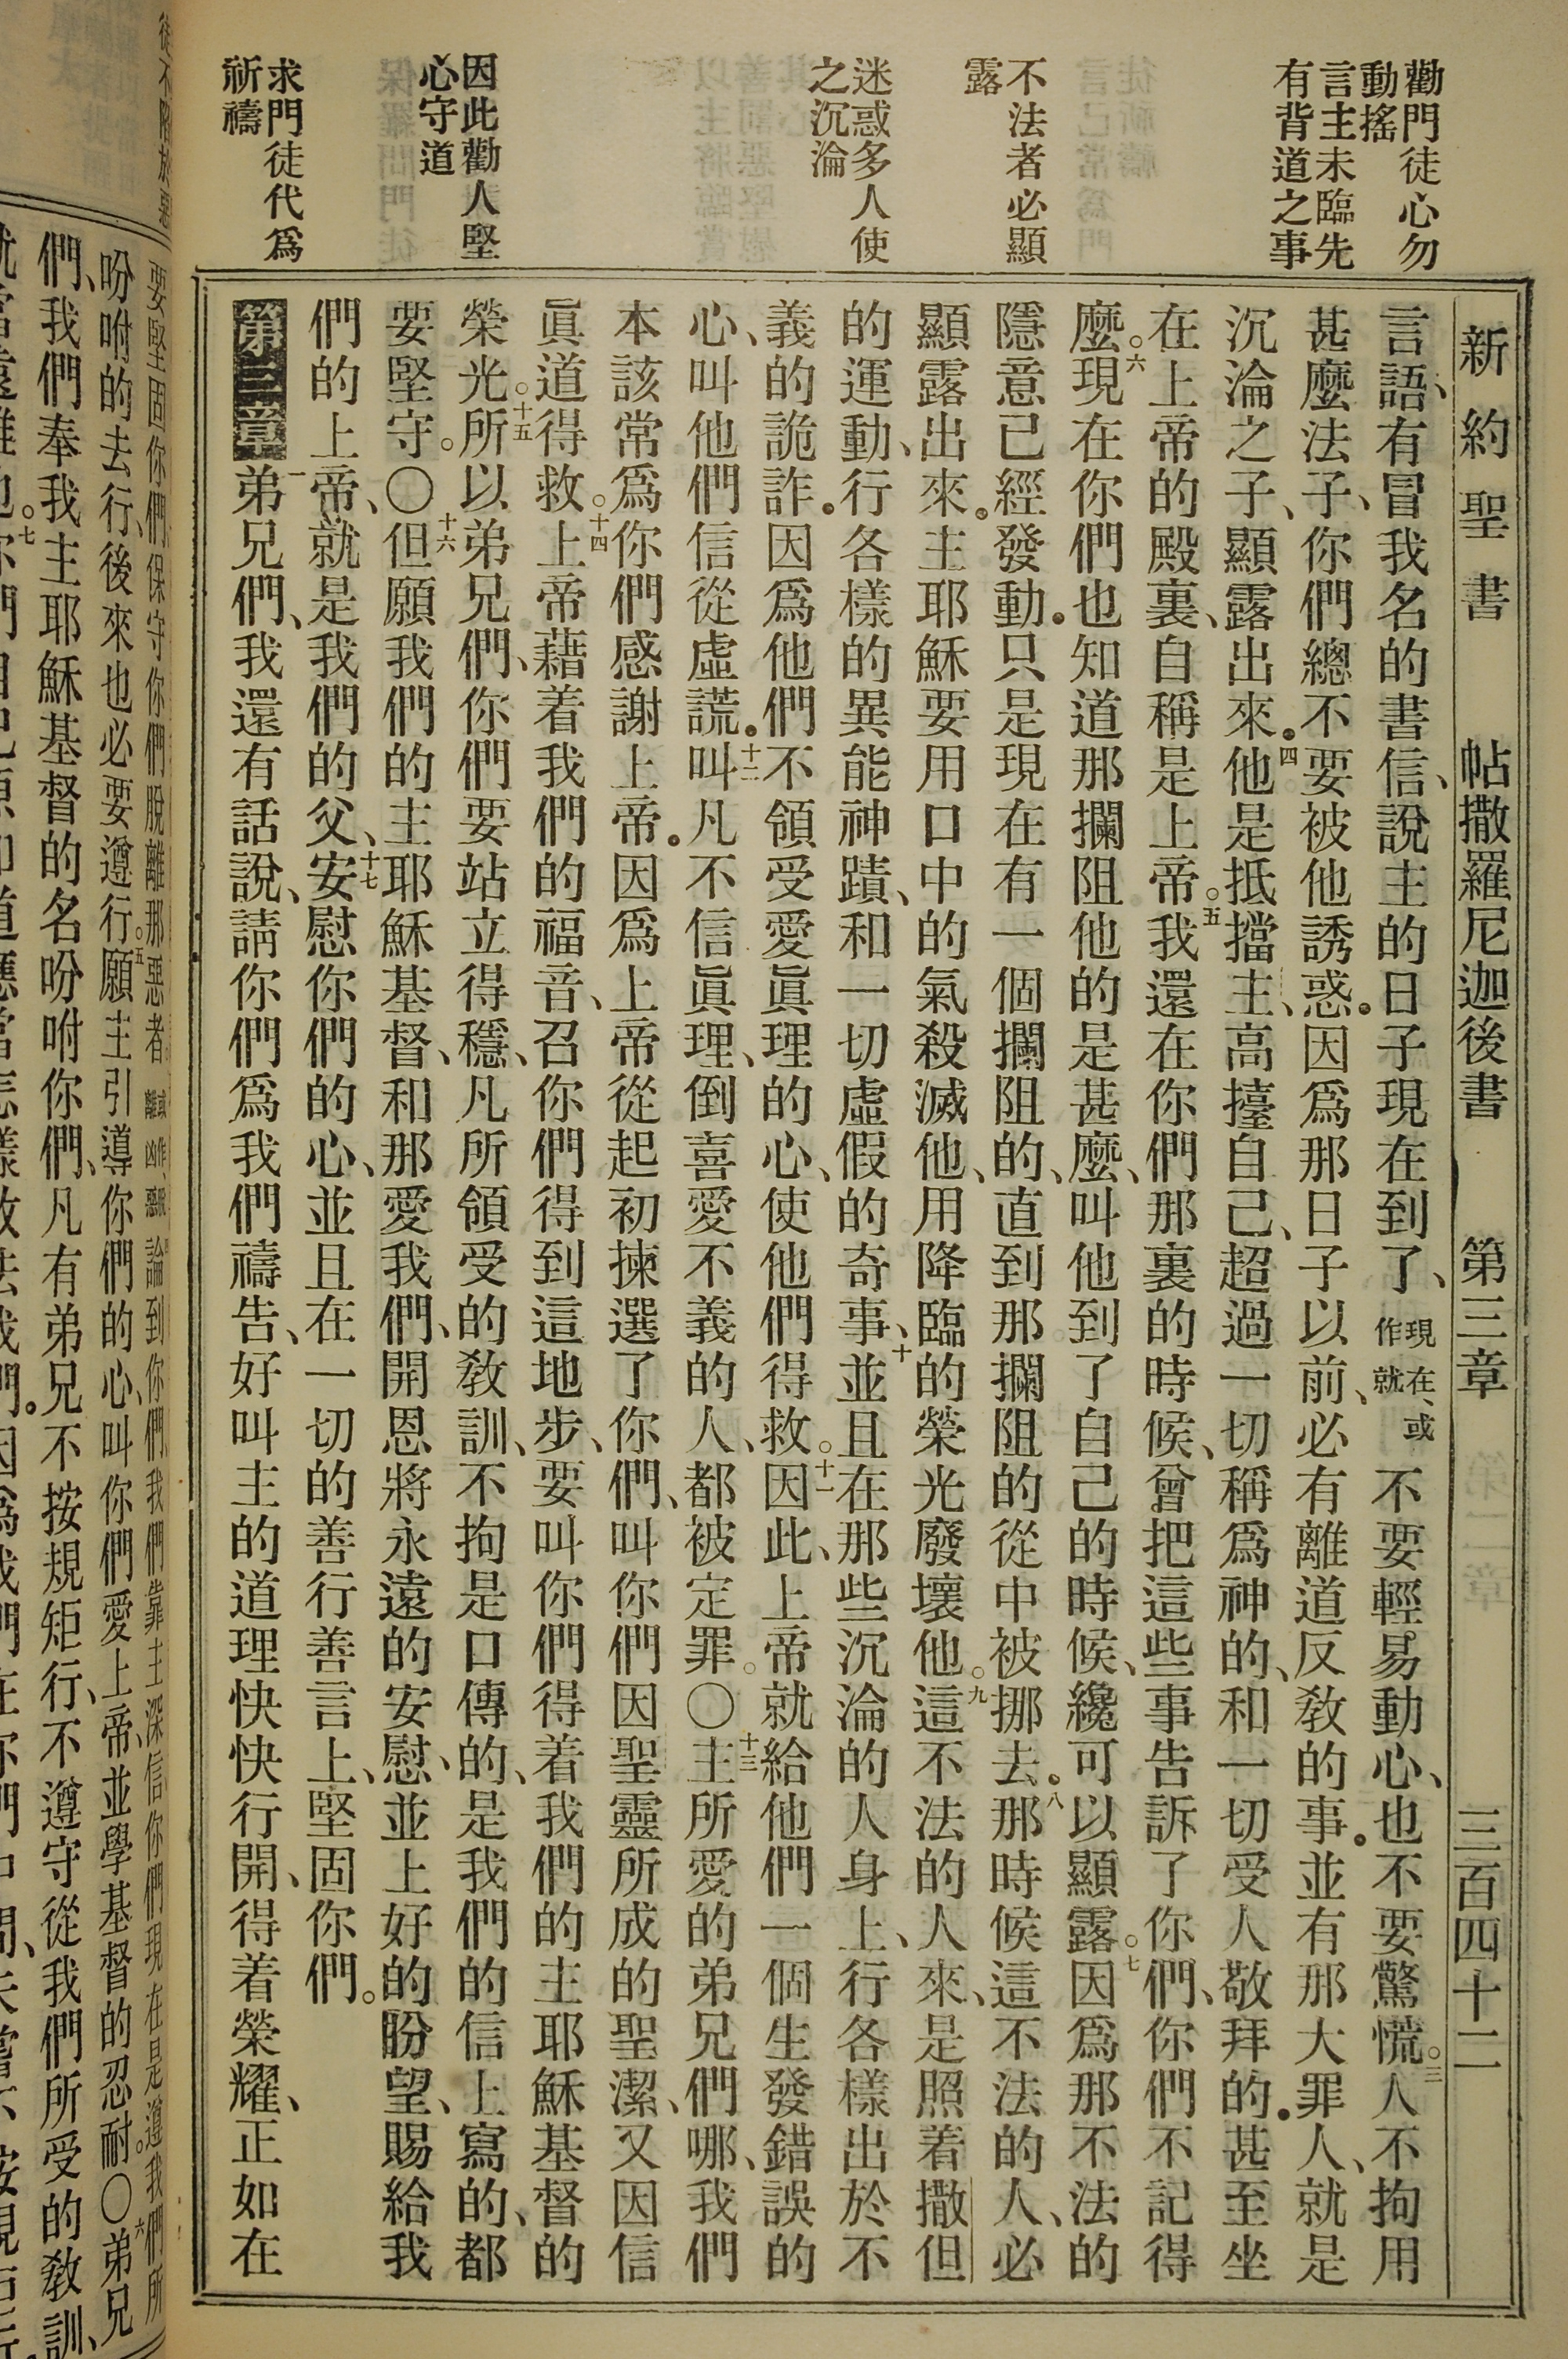 新約聖書　帖撒羅尼迦後書　第三章　三百四十二
勸門徒心勿
動搖
言主未臨先
有背道之事
不法者必顯
露
迷惑多人使
之沉淪
因此勸人堅
心守道
求門徒代爲
祈禱
言語、有冒我名的書信、說主的日子現在到了、現在、或作就不要輕易動心、也不要驚慌。三人不拘用
甚麼法子、你們總不要被他誘惑。因爲那日子以前、必有離道反教的事。並有那大罪人、就是
沉淪之子、顯露出來。四他是抵擋主、高擡自己、超過一切稱爲神的、和一切受人敬拜的。甚至坐
在上帝的殿裏、自稱是上帝。五我還在你們那裏的時候、曾把這些事告訴了你們、你們不記得
麼。六現在你們也知道那攔阻他的是甚麼、叫他到了自己的時候、纔可以顯露。七因爲那不法的
隱意已經發動。只是現在有一個攔阻的、直到那攔阻的從中被挪去。八那時候這不法的人、必
顯露出來。主耶穌要用口中的氣殺滅他、用降臨的榮光廢壞他。九這不法的人來、是照着撒但
的運動、行各樣的異能神蹟、和一切虛假的奇事、十並且在那些沉淪的人身上、行各樣出於不
義的詭詐。因爲他們不領受愛眞理的心、使他們得救。十一因此、上帝就給他們一個生發錯誤的
心、叫他們信從虛謊。十二叫凡不信眞理、倒喜愛不義的人、都被定罪。〇十三主所愛的弟兄們哪、我們
本該常爲你們感謝上帝。因爲上帝從起初揀選了你們、叫你們因聖靈所成的聖潔、又因信
眞道得救。十四上帝藉着我們的福音、召你們得到這地步、要叫你們得着我們的主耶穌基督的
榮光。十五所以弟兄們、你們要站立得穩、凡所領受的教訓、不拘是口傳的、是我們的信上寫的、都
要堅守。〇十六但願我們的主耶穌基督、和那愛我們、開恩將永遠的安慰、並上好的盼望、賜給我
們的上帝、就是我們的父、十七安慰你們的心、並且在一切的善行善言上、堅固你們。
第三章　一弟兄們、我還有話說、請你們爲我們禱告、好叫主的道理快快行開、得着榮耀、正如在
要堅固你們、保守你們脫離那惡者論到你們、我們靠主深信你們現在是遵我們所
吩咐的去行、後來也必要遵行。五願主引導你們的心、叫你們愛上帝、並學基督的忍耐。〇六弟兄
們、我們奉我主耶穌基督的名吩咐你們、凡有弟兄不按規矩行、不遵守從我們所受的教訓、